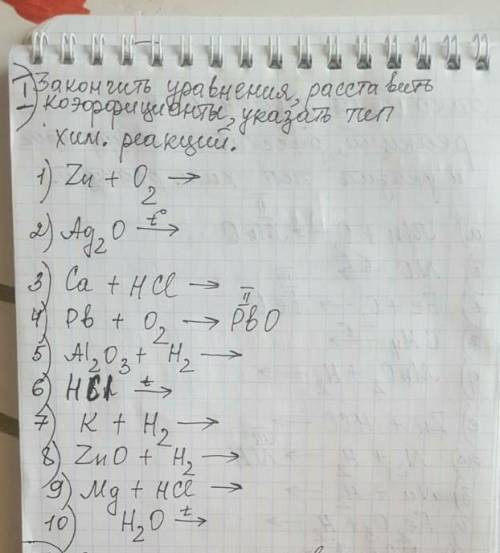 I) Закончить уравнения, расставить
коэффициенты, указать тип
хим. реакций.
1) Zn + O2 →
2) Ag2O t° →
3) Ca + HCl →
II
4) Pb + O2 → PbO
5) Al2O3 + H2 →
6) HCl t →
7) K + H2 →
8) ZnO + H2 →
9) Mg + HCl →
10) H2O t →